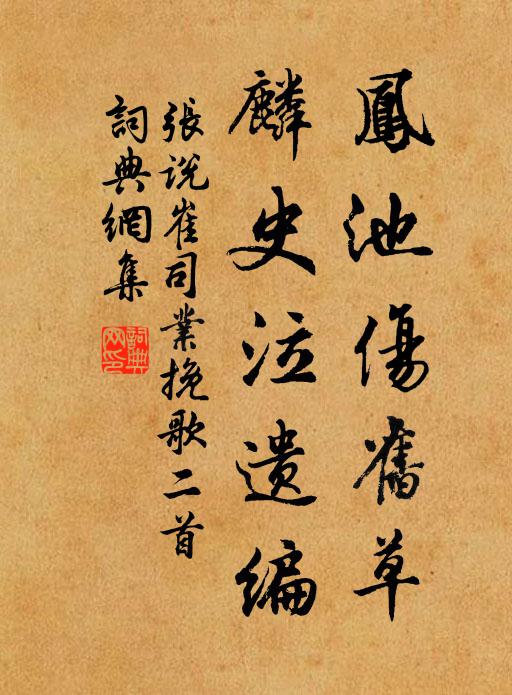 鳳池傷舊草
麟史泣遺編
張說崔司業挽歌二首
詞典網集
詞典
网印